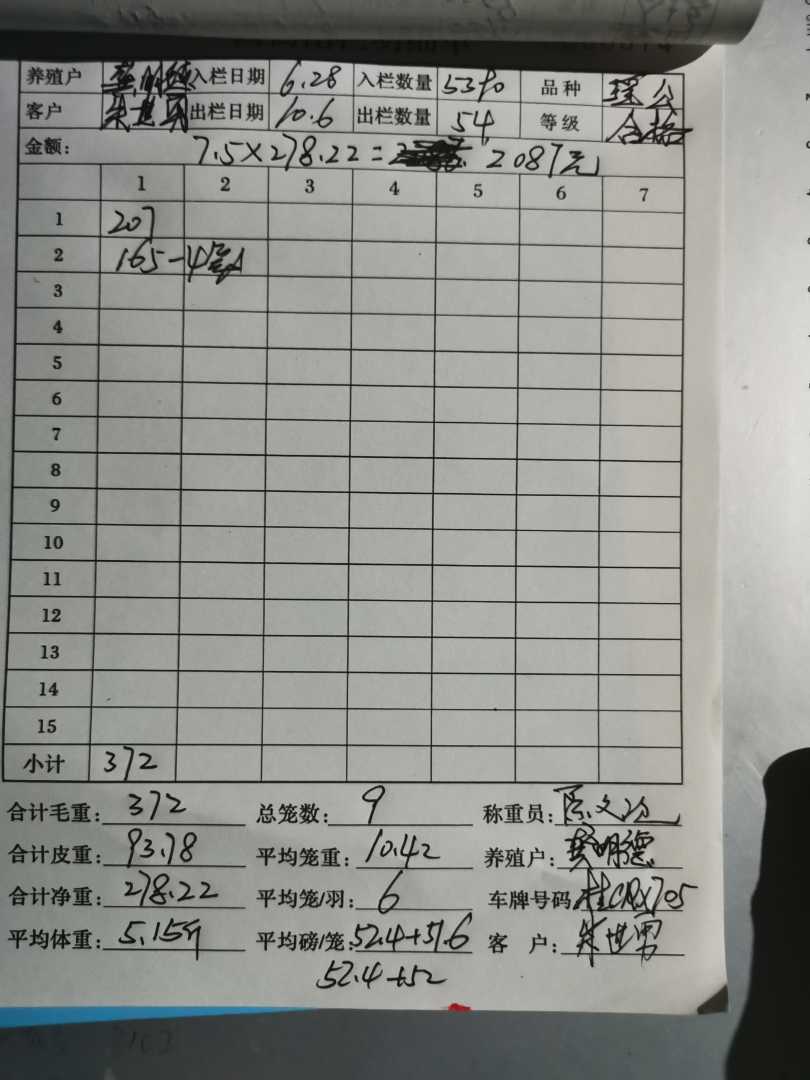 养殖户 龚明德 入栏日期 6.28 入栏数量 5390 品种 瑶公
客户 朱世男 出栏日期 10.6 出栏数量 54 等级 合格
金额: 7.5×278.22= 2087元
1 2 3 4 5 6 7
1 207
2 165-4笼
3
4
5
6
7
8
9
10
11
12
13
14
15
小计 372
合计毛重: 372 总笼数: 9 称重员: 陈文
合计皮重: 93.78 平均笼重: 10.42 养殖户: 龚明德
合计净重: 278.22 平均笼/羽: 6 车牌号码 桂CRX705
平均体重: 5.15斤 平均磅/笼: 52.4+51.6 客户: 朱世男
52.4+52